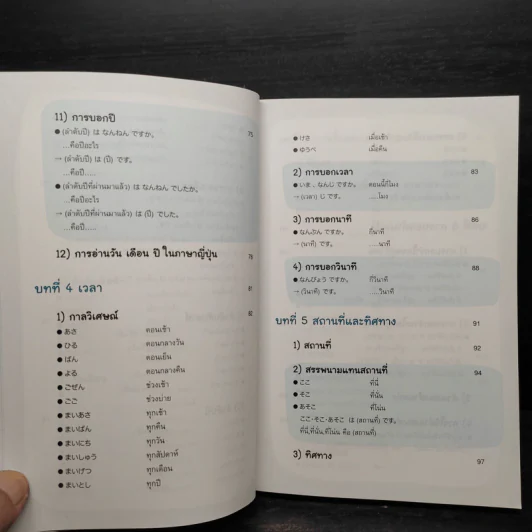 11) การบอกปี 75
● (ลำดับปี) は なんねん ですか。
...คือปีอะไร
→ (ลำดับปี) は (ปี) です。
...คือปี.....
● (ลำดับปีที่ผ่านมาแล้ว) は なんねん でしたか。
...คือปีอะไร
→ (ลำดับปีที่ผ่านมาแล้ว) は (ปี) でした。
...คือปี.....
12) การอ่านวัน เดือน ปี ในภาษาญี่ปุ่น 78
บทที่ 4 เวลา 81
1) กาลวิเศษณ์ 82
● あさ ตอนเช้า
● ひる ตอนกลางวัน
● ばん ตอนเย็น
● よる ตอนกลางคืน
● ごぜん ช่วงเช้า
● ごご ช่วงบ่าย
● まいあさ ทุกเช้า
● まいばん ทุกคืน
● まいにち ทุกวัน
● まいしゅう ทุกสัปดาห์
● まいげつ ทุกเดือน
● まいとし ทุกปี
● けさ เมื่อเช้า
● ゆうべ เมื่อคืน
2) การบอกเวลา 83
● いま、なんじ ですか。 ตอนนี้กี่โมง
→ (เวลา) じ です。 .....โมง
3) การบอกนาที 86
● なんぷん ですか。 กี่นาที
→ (นาที) です。 .....นาที
4) การบอกวินาที 88
● なんびょう ですか。 กี่วินาที
→ (วินาที) です。 .....วินาที
บทที่ 5 สถานที่และทิศทาง 91
1) สถานที่ 92
2) สรรพนามแทนสถานที่ 94
● ここ ที่นี่
● そこ ที่นั่น
● あそこ ที่โน่น
ここ・そこ・あそこ は (สถานที่) です。
ที่นี่,ที่นั่น,ที่โน่น คือ (สถานที่)
3) ทิศทาง 97